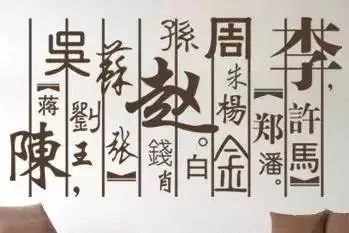 李,
許馬
【郑潘。
周
朱楊金
孫。白
赵
錢肖
蘇張】
劉王,
吳
【蒋
陳